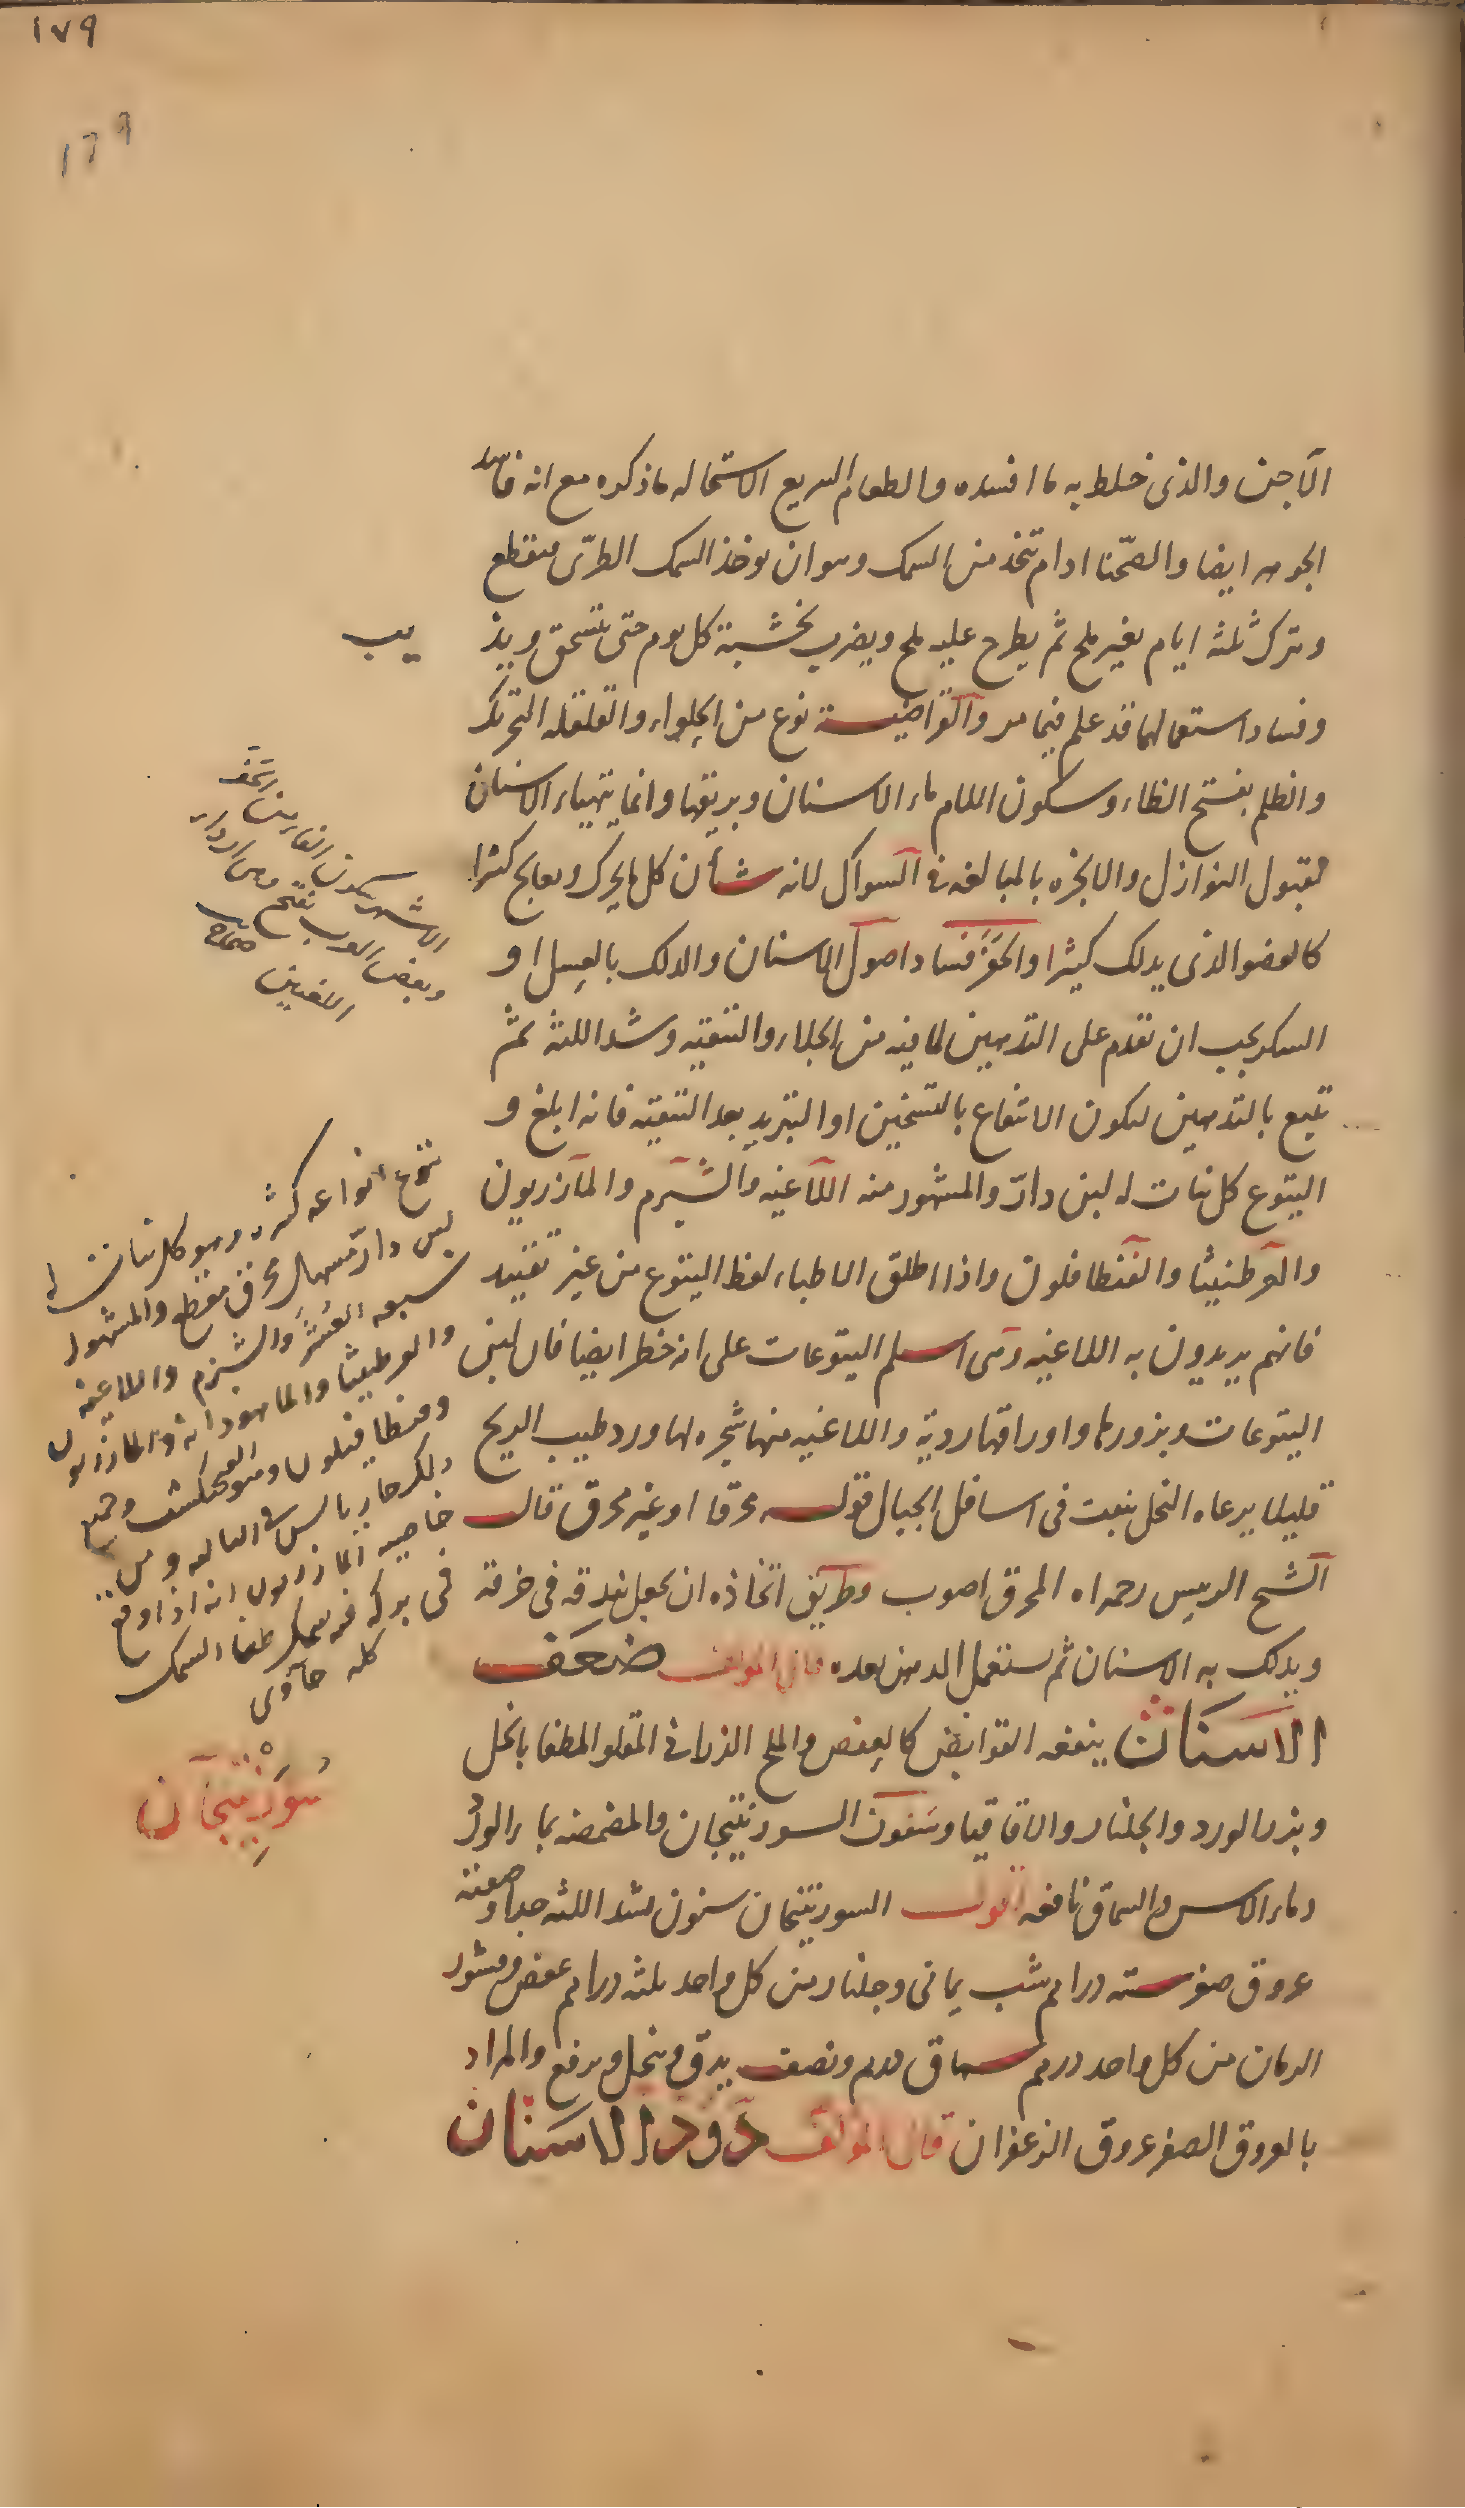 ١٧٩
١٦٩
الآجن والذى خلط به ما افسده والطعام السريع الاستحاله ماذكره مع انه فاسد
الجوهر ايضا والصّحنا ادام تتخذ من السمك وهو ان يوخذ السمك الطرىّ فيقطع
ويترك ثلثه ايام بغير ملح ثم يطرح عليه ملح ويضرب بخشبة كل يوم حتى ينسحق ويذ
يب
وفساد استعمالهما قد علم فيما مر والقراضيسة نوع من الحلواء والقلقله التحريك
والظلم بفتح الظاء وسكون اللام ماء الاسنان وبريقها وانما يتهياء الاسنان
لقبول النوازل والابخره بالمبالغه فى السواك لانه شأن كل مايحرك ويعالج كثيرا
كالعضو الذى يدلك كثيرا والحَفَر فساد اصول الاسنان والدلك بالعسل او
السكر يجب ان تقدم على التدهين لما فيه من الجلاء والتنقيه وشد اللثه ثم
تتبع بالتدهين ليكون الانتفاع بالتسخين او التبريد بعد التنقيه فانه ابلغ و
اليتوع كل نبات له لبن دارّ والمشهور منه اللاعيه والشبرم والمازريون
والعرطنيثا والفنطافلون واذا اطلق الاطباء لفظ اليتوع من غير تقييد
فانهم يريدون به اللاعيه وهى اسلم اليتوعات على انه خطر ايضا فان لبن
اليتوعات وبزورها واوراقها ردية واللاعيه منها شجره لها ورد طيب الريح
قليلا يرعاه النحل ينبت فى اسافل الجبال قوله محرقا او غير محرق قال
الشيخ الرييس رحمه اه المحرق اصوب وطريق اتخاذه ان يجعل بندقه فى خرقة
ويدلك به الاسنان ثم يستعمل الدهن بعده قال المولف ضعف
الاسنان ينفعه القوابض كالعفص والملح الذرانى المقلو المطفا بالخل
وبزر الورد والجلنار والاقاقيا وسفوف السورتنيجان والمضمضه بماء الورد
وماء الاس والسماق نافعه اقول السورتنيجان سنون يشد اللثه جدا وصفته
عروق صفر سته دراهم شب يمانى وجلنار من كل واحد ثلثه دراهم عفص وقشور
الرمان من كل واحد درهم سماق درهم ونصف يدق وينخل ويرفع والمراد
بالعروق الصفر عروق الزعفران قال المولف دود الاسنان
الاشهر سكون الفا
وبعض العرب بفتح
اللغتين
صحاح
يتوع انواعه كثيره وهو كل نبات له
لبن دارّ مسهل محرق مقطع والمشهور
سبعه العُشَر والشبرم واللاعيه
والعرطنيثا والماهودانه والمازريون
وفنطافيلون وهو الفنجنكشت وجميع
ذلك حار يابس فى الرابعه ومن
خاصيه المازريون انه اذا وقع
فى بركه فيه سمك طفا السمك
كله حاوى
سُورَتْنِيجان